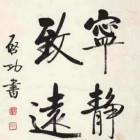 寧靜
致遠
启功書